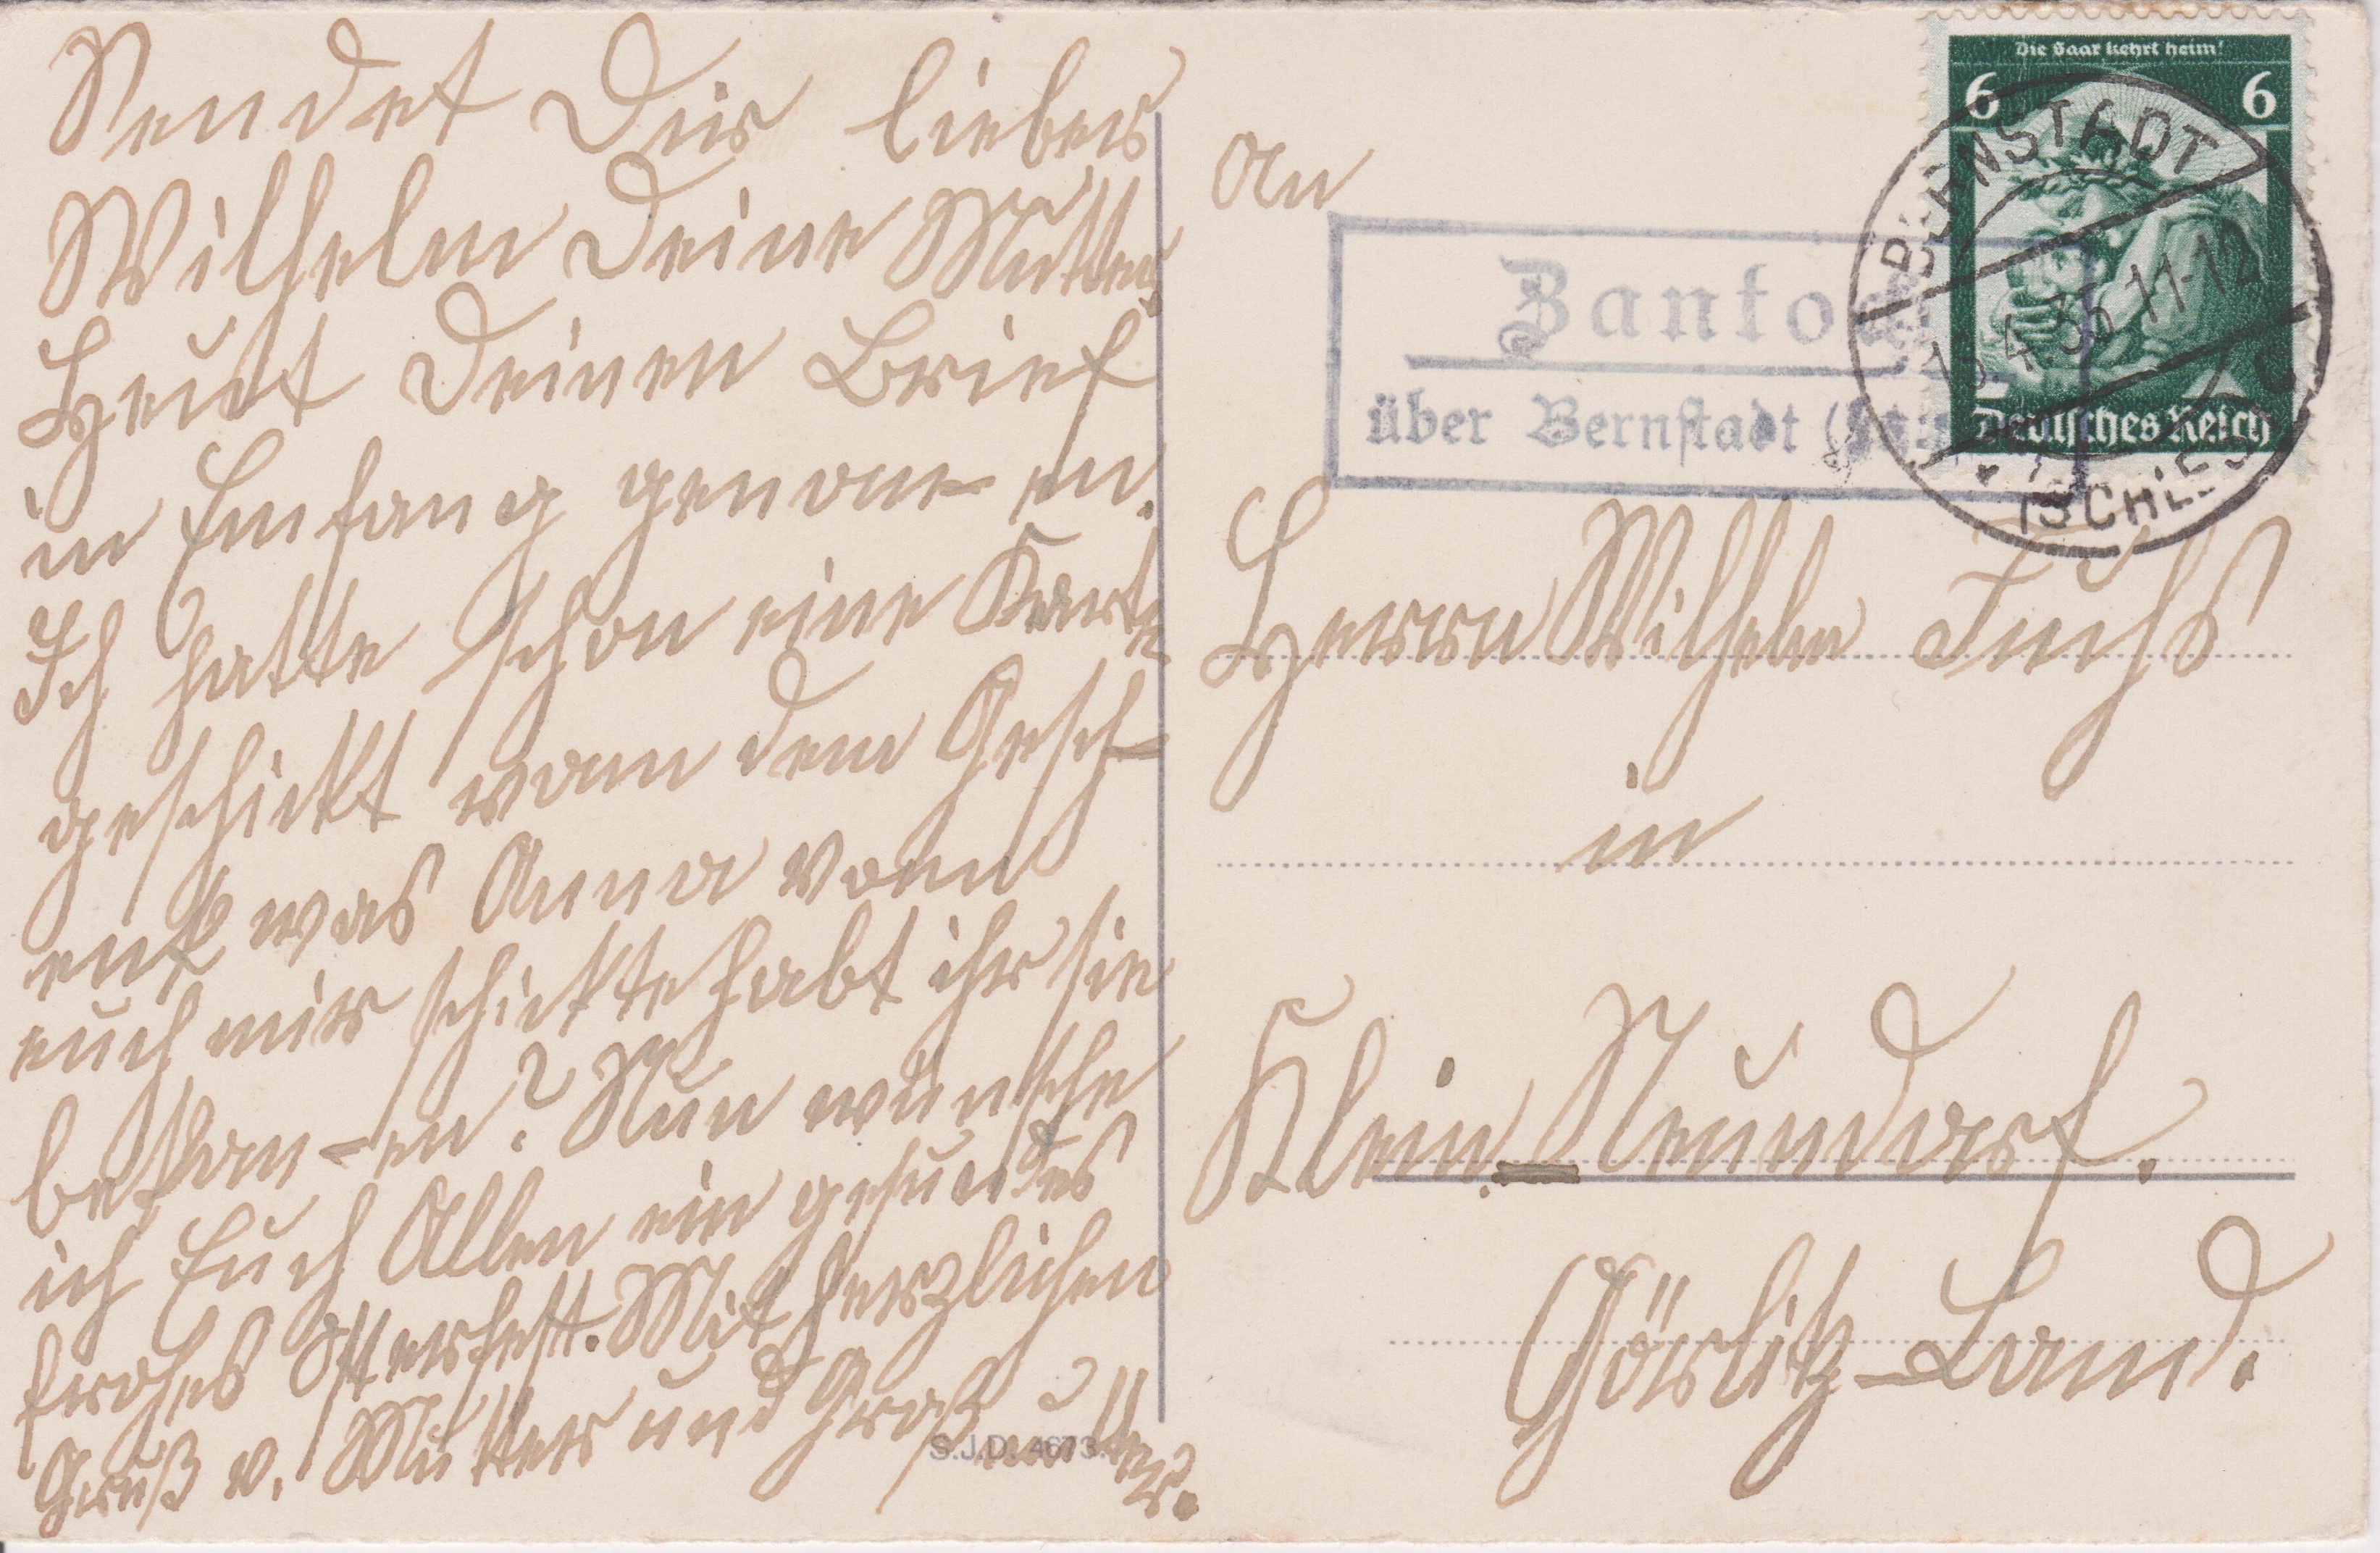 Sendet Dir lieber
Wilhelm Deine Mutter
Heut Deinen Brief
in Emfang genom- en.
Ich hatte schon eine Karte
geschickt vom dem Gesch-
enk was Anna vom
euch mir schickte habt ihr sie
bekom-en? Nun wünsche
ich Euch Allen ein gesundes
frohes Osterfest. Mit herzlichen
Gruß v. Mutter und Groß
mutter.
S.J.D. 4673.
An
Zantoch
über Bernstadt
Die Saar kehrt heim!
6 6
Deutsches Reich
BERNSTADT
4.35.11-12
(SCHLES
Herrn Wilhelm Fuchs
in
Klein-Neundorf.
Görlitz-Land.